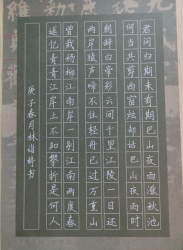 君问归期未有期巴山夜雨涨秋池
何当共剪西窗烛却话巴山夜雨时
朝辞白帝彩云间千里江陵一日还
两岸猿声啼不住轻舟已过万重山
曾栽杨柳江南岸一别江南两度春
遥忆青青江岸上不知攀折是何人
庚子春月林书